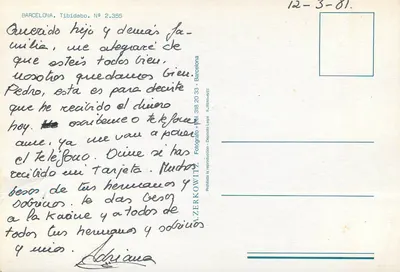 BARCELONA, Tibidabo. Nº 2.355
12-3-81.
Querido hijo y demás fa-
milia, me alegraré de
que esteis todos bien,
nosotros quedamos bien.
Pedro, esta es para decirte
que he recibido el dinero
hoy. escribeme o telefonea-
ame, ya me van a poner
el teléfono. Dime si has
recibido mi Tarjeta. Muchos
besos de tus hermanos y
sobrinos. le das besos
a la Karine y a todos de
todos tus hermanos y sobrinos
y mios. Adriana
A. ZERKOWITZ. Fotógrafo 20 33 - Barcelona
Prohibida la reproducción